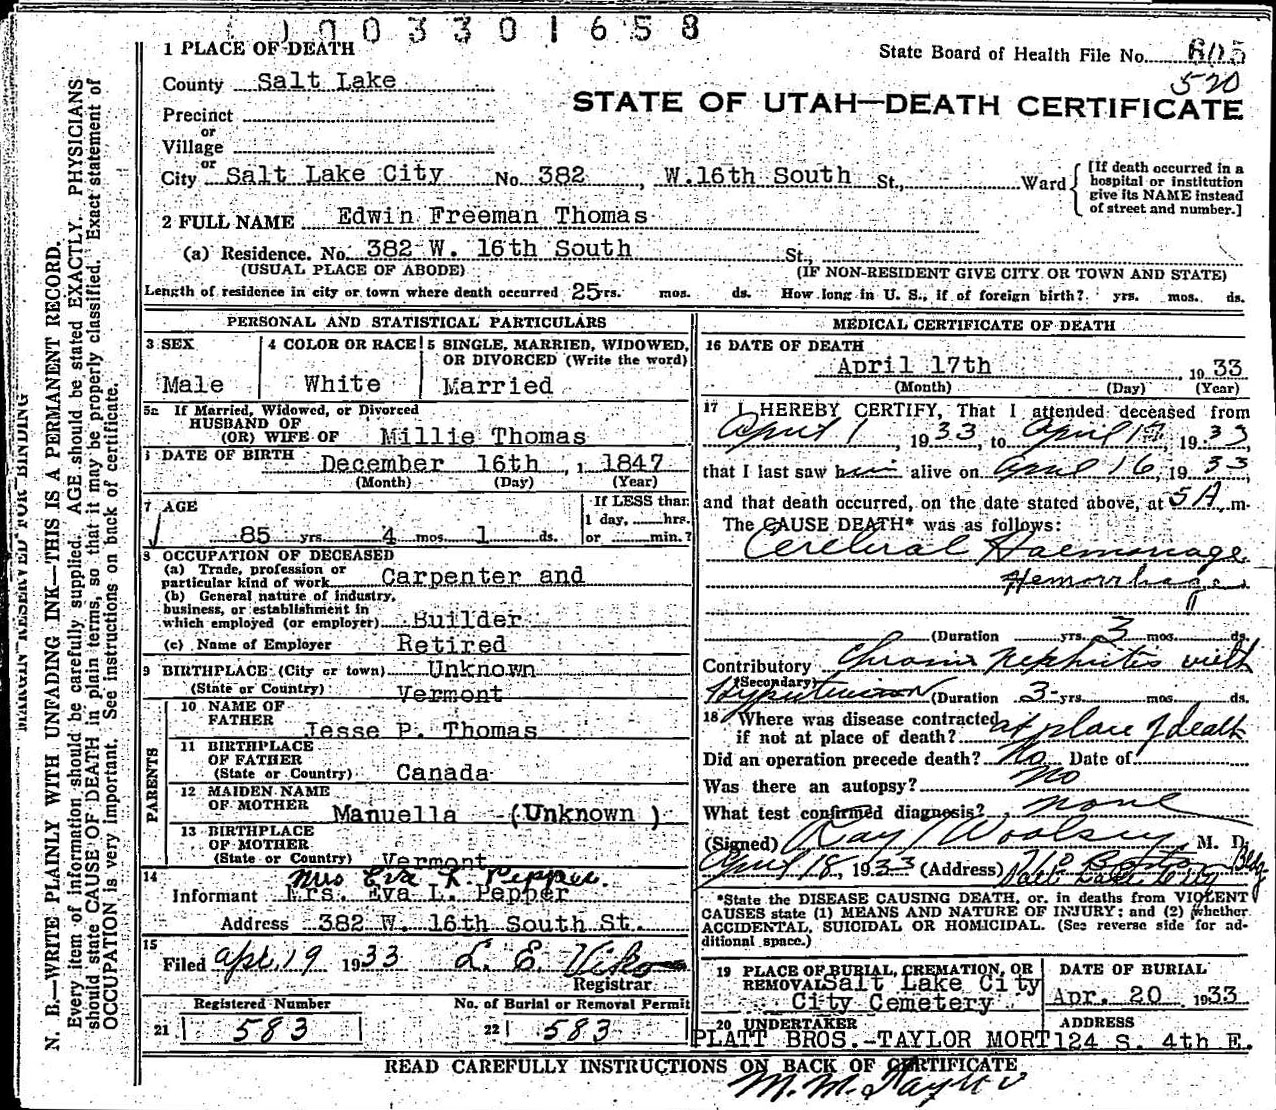 1003301658
1 PLACE OF DEATH
State Board of Health File No. 605
520
County Salt Lake
STATE OF UTAH—DEATH CERTIFICATE
Precinct
or
Village
or
City Salt Lake City No. 382, W.16th South St., Ward
[If death occurred in a hospital or institution give its NAME instead of street and number.]
2 FULL NAME Edwin Freeman Thomas
(a) Residence. No. 382 W. 16th South St.,
(USUAL PLACE OF ABODE) (IF NON-RESIDENT GIVE CITY OR TOWN AND STATE)
Length of residence in city or town where death occurred 25 yrs. mos. ds. How long in U. S., if of foreign birth? yrs. mos. ds.
PERSONAL AND STATISTICAL PARTICULARS
3 SEX
Male
4 COLOR OR RACE
White
5 SINGLE, MARRIED, WIDOWED,
OR DIVORCED (Write the word)
Married
5a If Married, Widowed, or Divorced
HUSBAND OF
(OR) WIFE OF Millie Thomas
DATE OF BIRTH December 16th, 1847
(Month) (Day) (Year)
7 AGE
85 yrs. 4 mos. 1 ds.
If LESS than
1 day, hrs.
or min.?
8 OCCUPATION OF DECEASED
(a) Trade, profession or
particular kind of work Carpenter and
(b) General nature of industry,
business, or establishment in
which employed (or employer) Builder
(c) Name of Employer Retired
9 BIRTHPLACE (City or town) Unknown
(State or Country) Vermont
PARENTS
10 NAME OF
FATHER Jesse P. Thomas
11 BIRTHPLACE
OF FATHER
(State or Country) Canada
12 MAIDEN NAME
OF MOTHER Manuella (Unknown)
13 BIRTHPLACE
OF MOTHER
(State or Country) Vermont
14 Mrs Eva L. Pepper.
Informant Mrs. Eva L. Pepper
Address 382 W. 16th South St.
15
Filed Apr. 19 1933 L. E. Viko
Registrar
Registered Number
21 583
No. of Burial or Removal Permit
22 583
MEDICAL CERTIFICATE OF DEATH
16 DATE OF DEATH
April 17th 1933
(Month) (Day) (Year)
17 I HEREBY CERTIFY, That I attended deceased from
April 1, 1933, to April 17, 1933
that I last saw him alive on April 16, 1933,
and that death occurred, on the date stated above, at 5 A. m.
The CAUSE DEATH* was as follows:
Cerebral Haemorrage
Hemorrhage
(Duration yrs. 3 mos. ds.
Contributory Chronic Nephritis with
(Secondary)
Hypertension (Duration 3 yrs. mos. ds.
18 Where was disease contracted
if not at place of death? at place of death
Did an operation precede death? No Date of
Was there an autopsy? No
What test confirmed diagnosis? none
(Signed) Ray Woolsey M. D.
April 18, 1933 (Address) Boston Bldg
Salt Lake City
*State the DISEASE CAUSING DEATH, or, in deaths from VIOLENT
CAUSES state (1) MEANS AND NATURE OF INJURY; and (2) whether
ACCIDENTAL, SUICIDAL OR HOMICIDAL. (See reverse side for ad-
ditional space.)
19 PLACE OF BURIAL, CREMATION, OR
REMOVAL Salt Lake City
City Cemetery
DATE OF BURIAL
Apr. 20 1933
20 UNDERTAKER
PLATT BROS.-TAYLOR MORT
ADDRESS
124 S. 4th E.
READ CAREFULLY INSTRUCTIONS ON BACK OF CERTIFICATE
M. M. Taylor
MARGIN RESERVED FOR BINDING
N. B.—WRITE PLAINLY WITH UNFADING INK—THIS IS A PERMANENT RECORD.
Every item of information should be carefully supplied. AGE should be stated EXACTLY. PHYSICIANS
should state CAUSE OF DEATH in plain terms, so that it may be properly classified. Exact statement of
OCCUPATION is very important. See instructions on back of certificate.